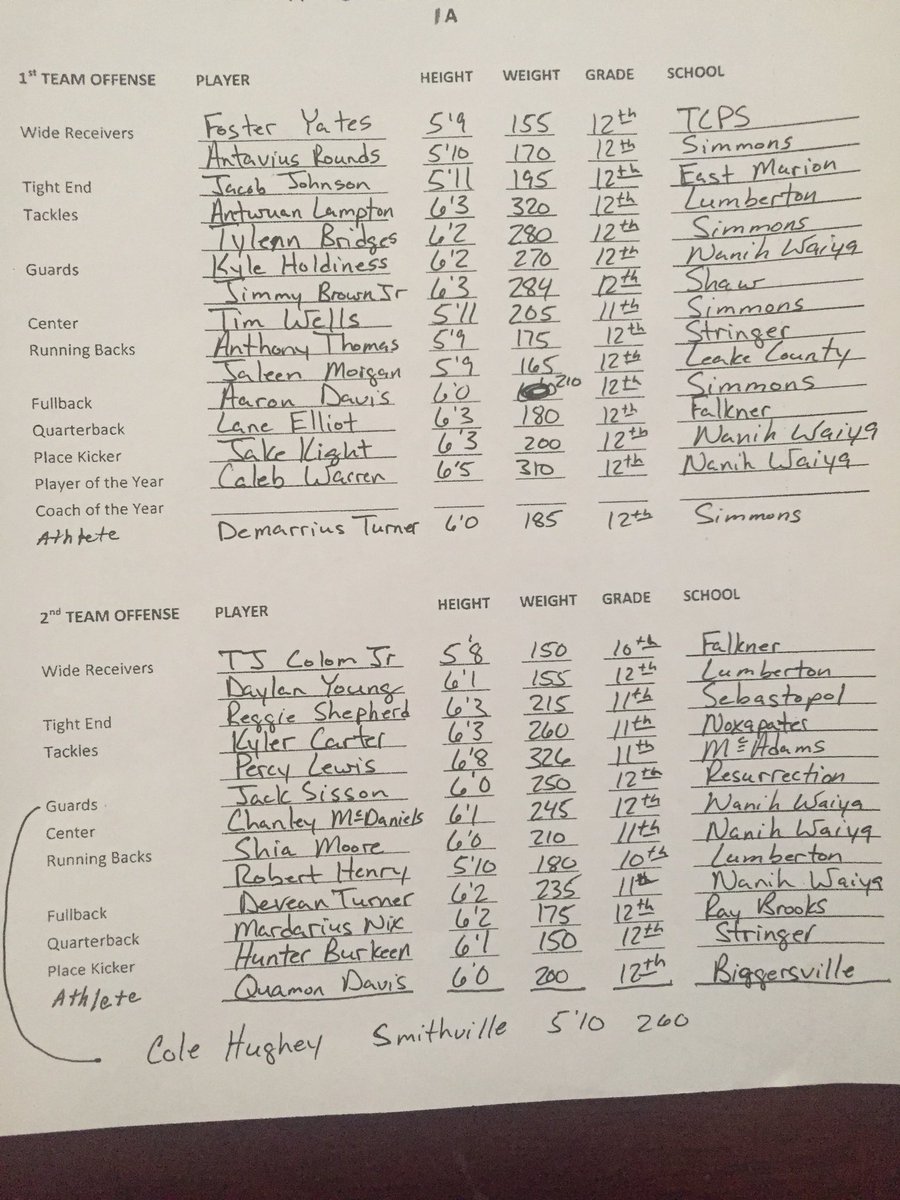 1A
1st TEAM OFFENSE PLAYER HEIGHT WEIGHT GRADE SCHOOL
Wide Receivers Foster Yates 5'9 155 12th TCPS
Antavius Rounds 5'10 170 12th Simmons
Tight End Jacob Johnson 5'11 195 12th East Marion
Tackles Antwuan Lampton 6'3 320 12th Lumberton
Tylenn Bridges 6'2 280 12th Simmons
Guards Kyle Holdiness 6'2 270 12th Nanih Waiya
Jimmy Brown Jr 6'3 284 12th Shaw
Center Tim Wells 5'11 205 11th Simmons
Running Backs Anthony Thomas 5'9 175 12th Stringer
Jaleen Morgan 5'9 165 12th Leake County
Fullback Aaron Davis 6'0 210 12th Simmons
Quarterback Lane Elliot 6'3 180 12th Falkner
Place Kicker Jake Kight 6'3 200 12th Nanih Waiya
Player of the Year Caleb Warren 6'5 310 12th Nanih Waiya
Coach of the Year
Athlete Demarrius Turner 6'0 185 12th Simmons
2nd TEAM OFFENSE PLAYER HEIGHT WEIGHT GRADE SCHOOL
Wide Receivers TJ Colom Jr 5'8 150 10th Falkner
Daylan Young 6'1 155 12th Lumberton
Tight End Reggie Shepherd 6'3 215 11th Sebastopol
Tackles Kyler Carter 6'3 260 11th Noxapater
Percy Lewis 6'8 326 11th McAdams
Guards Jack Sisson 6'0 250 12th Resurrection
Center Chanley McDaniels 6'1 245 12th Nanih Waiya
Running Backs Shia Moore 6'0 210 11th Nanih Waiya
Robert Henry 5'10 180 10th Lumberton
Fullback Devean Turner 6'2 235 11th Nanih Waiya
Quarterback Mardarius Nix 6'2 175 12th Ray Brooks
Place Kicker Hunter Burkeen 6'1 150 12th Stringer
Athlete Quamon Davis 6'0 200 12th Biggersville
Cole Hughey Smithville 5'10 260